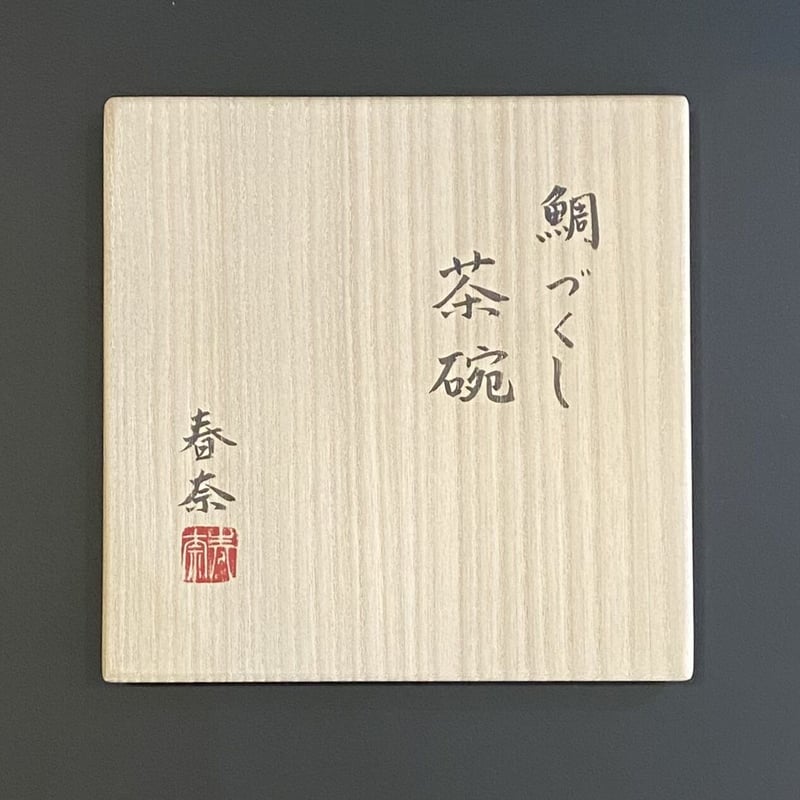 鯛づくし
茶碗
春奈
春奈